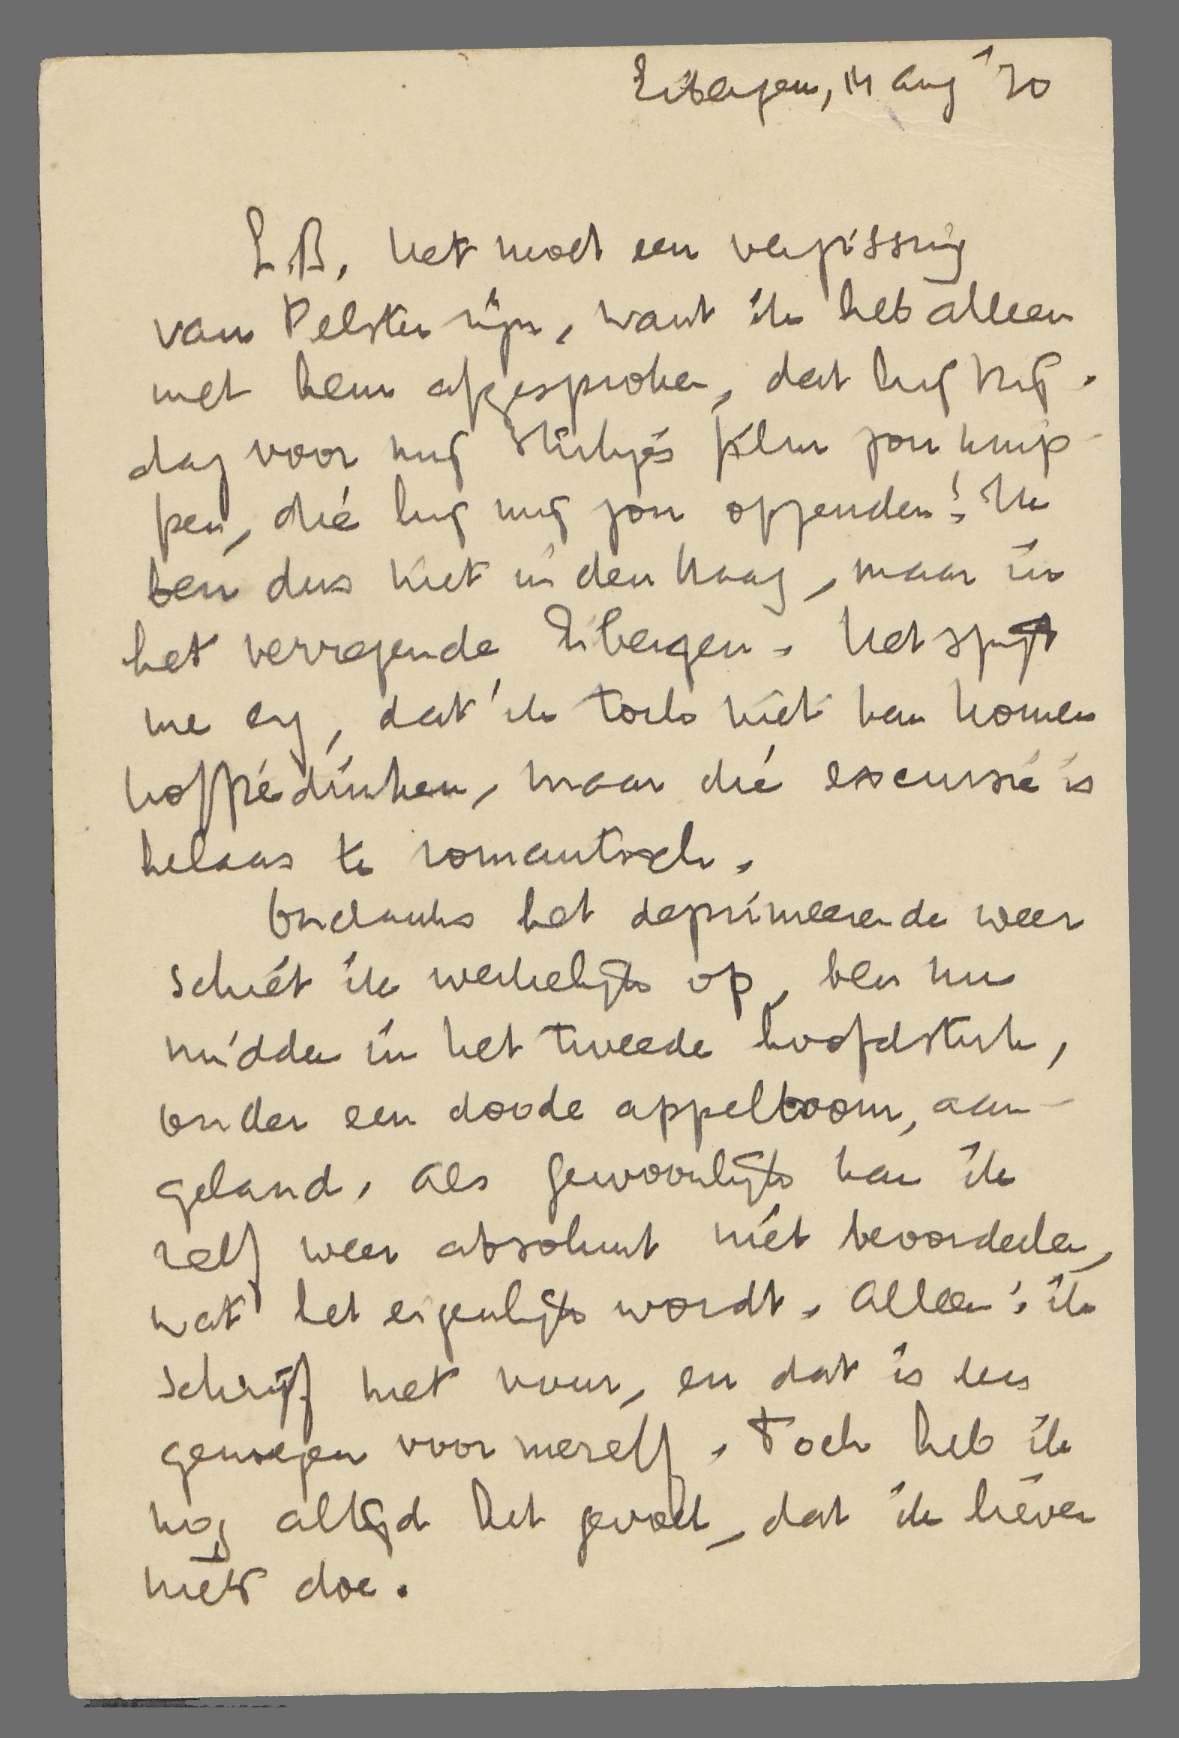 Eibergen, 14 Aug '30
L.B, het moet een vergissing
van Pelster zijn, want ik heb alleen
met hem afgesproken, dat hij Vrij-
dag voor mij stukjes film zou knip-
pen, die hij mij zou opzenden! Ik
ben dus niet in den Haag, maar in
het verregende Eibergen. Het spijt
me erg, dat ik toch niet kan komen
koffiedrinken, maar die excursie is
helaas te romantisch.
Ondanks het deprimeerende weer
schiet ik werkelijk op, ben nu
midden in het tweede hoofdstuk,
onder een doode appelboom, aan-
geland. Als gewoonlijk kan ik
zelf weer absoluut niet beoordeelen,
wat het eigenlijk wordt. Alleen: ik
schrijf met vuur, en dat is een
genoegen voor mezelf. Toch heb ik
nog altijd het gevoel, dat ik liever
niets doe.